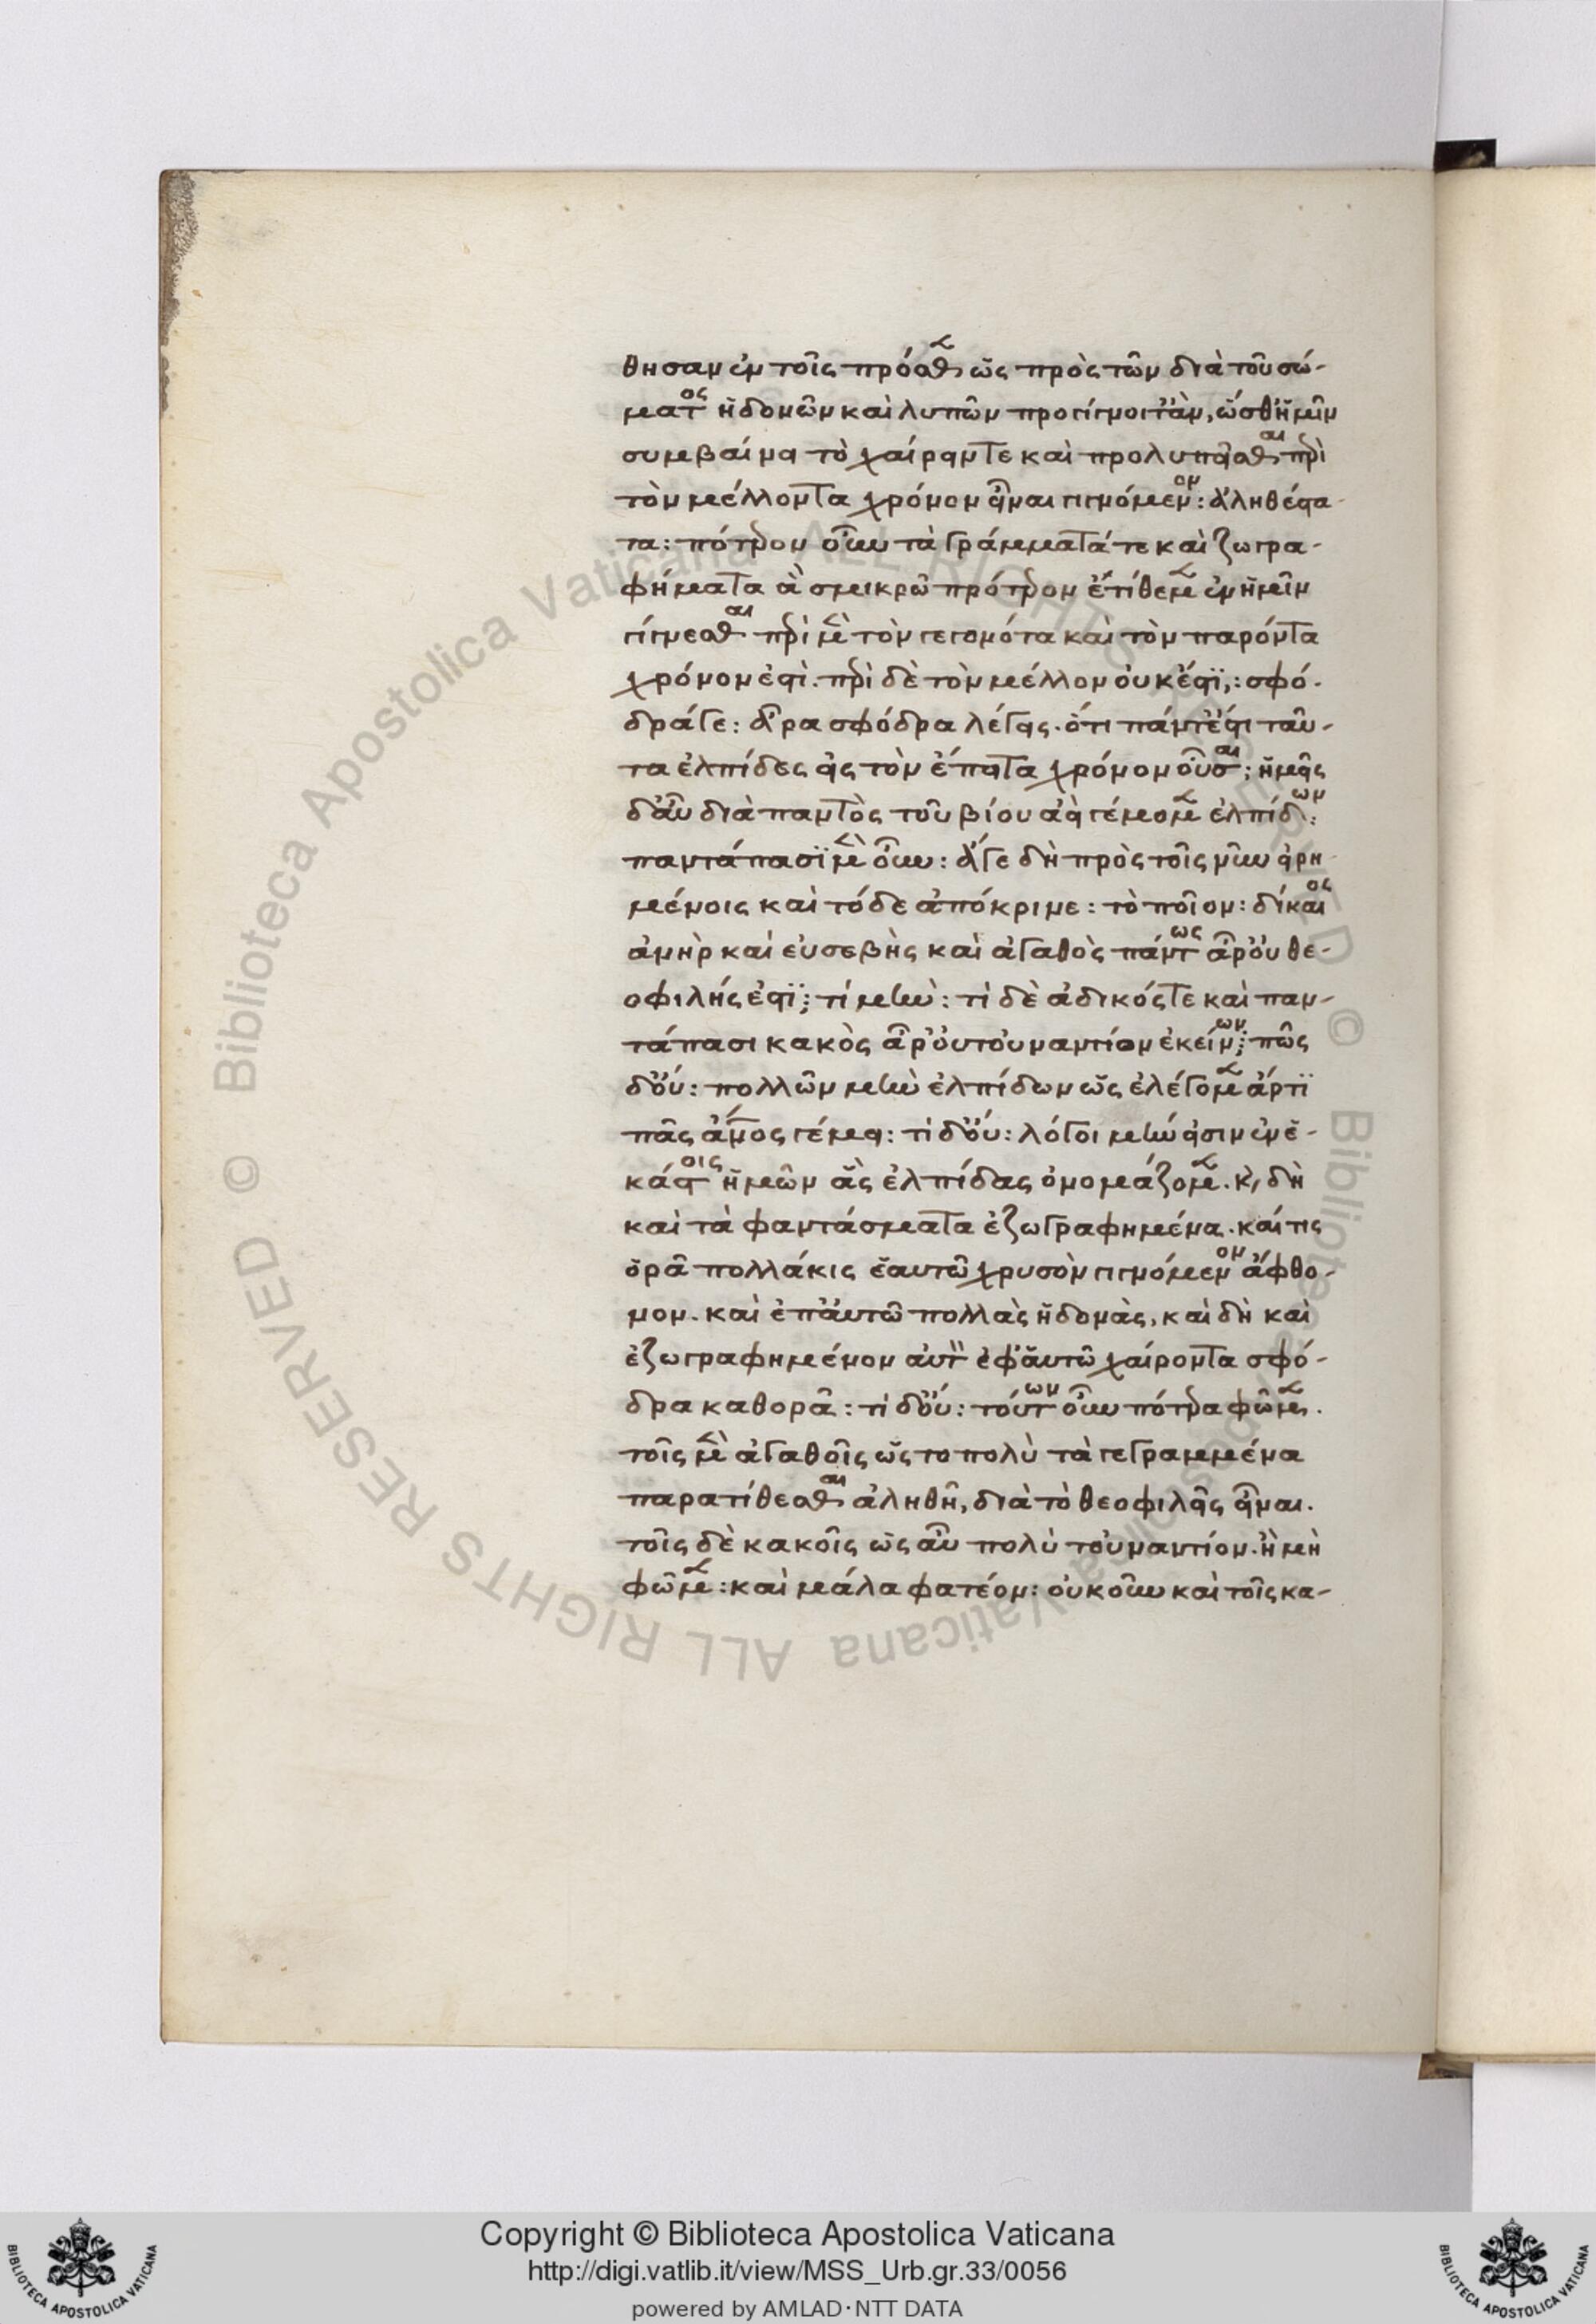 θησαν ἐν τοῖς πρόσθεν ὡς πρὸς τῶν διὰ τοῦ σώ-
ματος ἡδονῶν καὶ λυπῶν προγίγνοιτ' ἂν, ὥσθ' ἡμῖν
συμβαίνει τὸ χαίρειν τε καὶ προλυπεῖσθαι περὶ
τὸν μέλλοντα χρόνον εἶναι γιγνόμενον: ἀληθέστα-
τα: πότερον οὖν τὰ γράμματά τε καὶ ζωγρα-
φήματα ἃ σμικρῶ πρότερον ἐτίθεμεν ἐν ἡμῖν
γίγνεσθαι περὶ μὲν τὸν γεγονότα καὶ τὸν παρόντα
χρόνον ἐστὶ. περὶ δὲ τὸν μέλλον οὐκ ἔστϊ,: σφό-
δρά γε: ἆρα σφόδρα λέγεις. ὅτι πάντ' ἐστι ταῦ-
τα ἐλπίδες εἰς τὸν ἔπειτα χρόνον οὖσαι; ἡμεῖς
δ' αὖ διὰ παντὸς τοῦ βίου ἀεὶ γέμομεν ἐλπίδων:
παντάπασϊ μὲν οὖν: ἄγε δὴ πρὸς τοῖς νῦν εἰρη
μένοις καὶ τόδε ἀπόκριναι: τὸ ποῖον: δίκαιος
ἀνὴρ καὶ εὐσεβὴς καὶ ἀγαθὸς πάντως ἆρ' οὐ θε-
οφιλής ἐστϊ; τί μὴν: τί δὲ ἀδικός τε καὶ παν-
τάπασι κακὸς ἆρ' οὐ τοὐναντίον ἐκείνων; πῶς
δ' οὔ: πολλῶν μὴν ἐλπίδων ὡς ἐλέγομεν ἄρτϊ
πᾶς ἄνος γέμει: τί δ' οὔ: λόγοι μήν εἰσιν ἐν ἑ-
κάστοις ἡμῶν ἃς ἐλπίδας ὀνομάζομεν. κ, δὴ
καὶ τὰ φαντάσματα ἐζωγραφημένα. καί τις
ὁρᾶ πολλάκις ἑαυτῶ χρυσὸν γιγνόμενον ἄφθο-
νον. καὶ ἐπ' αὐτῶ πολλὰς ἡδονὰς, καὶ δὴ καὶ
ἐζωγραφημένον αὐτ ἐφ' αὑτῶ χαίροντα σφό-
δρα καθορᾶ: τί δ' οὔ: τούτων οὖν πότερα φῶμεν.
τοῖς μὲν ἀγαθοῖς ὡς το πολὺ τὰ γεγραμμένα
παρατίθεσθαι ἀληθῆ, διὰ τὸ θεοφιλεῖς εἶναι.
τοῖς δὲ κακοῖς ὡς αὖ πολὺ τοὐναντίον. ἢ μὴ
φῶμεν: καὶ μάλα φατέον: οὐκοῦν καὶ τοῖς κα-
Copyright © Biblioteca Apostolica Vaticana
http://digi.vatlib.it/view/MSS_Urb.gr.33/0056
powered by AMLAD·NTT DATA